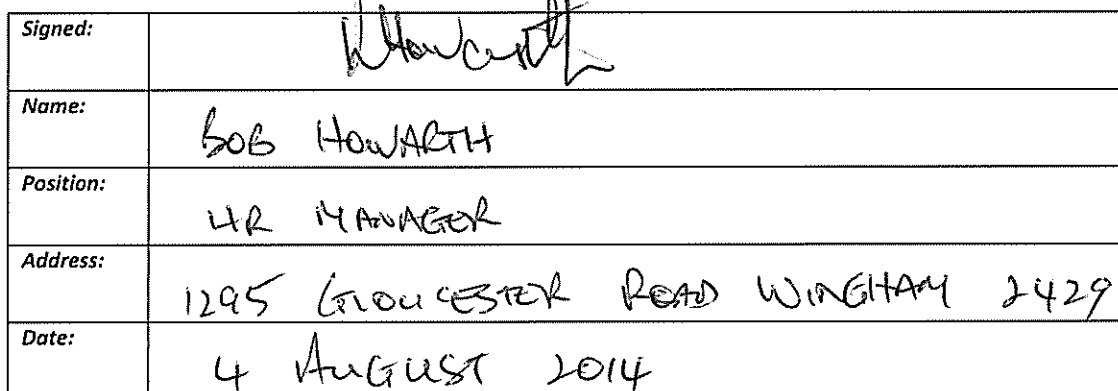 Signed: RHowarth
Name: BOB HOWARTH
Position: HR MANAGER
Address: 1295 GLOUCESTER ROAD WINGHAM 2429
Date: 4 AUGUST 2014